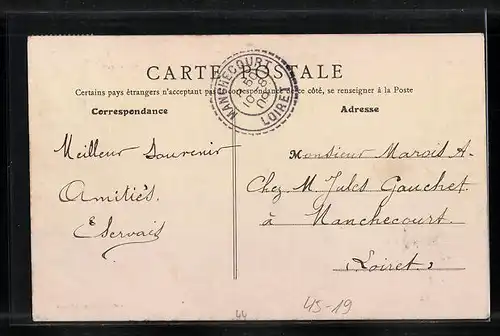 CARTE POSTALE
MANCHECOURT
LOIRET
Certains pays étrangers n'acceptant pas la correspondance de ce côté, se renseigner à la Poste
Correspondance
Adresse
Meilleur Souvenir
Amitiés.
E Servais
Monsieur Marois A.
Chez M. Jules Gauchet.
à Manchecourt.
(Loiret.)
44
45-19